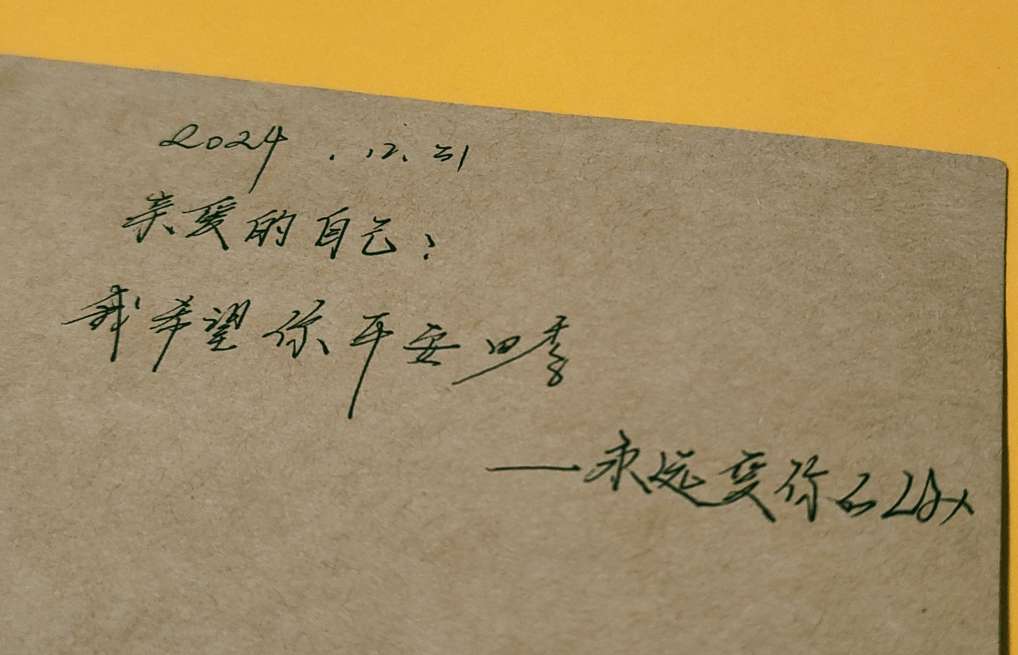 2024.12.21
亲爱的自己：
我希望你平安四季
——永远爱你的